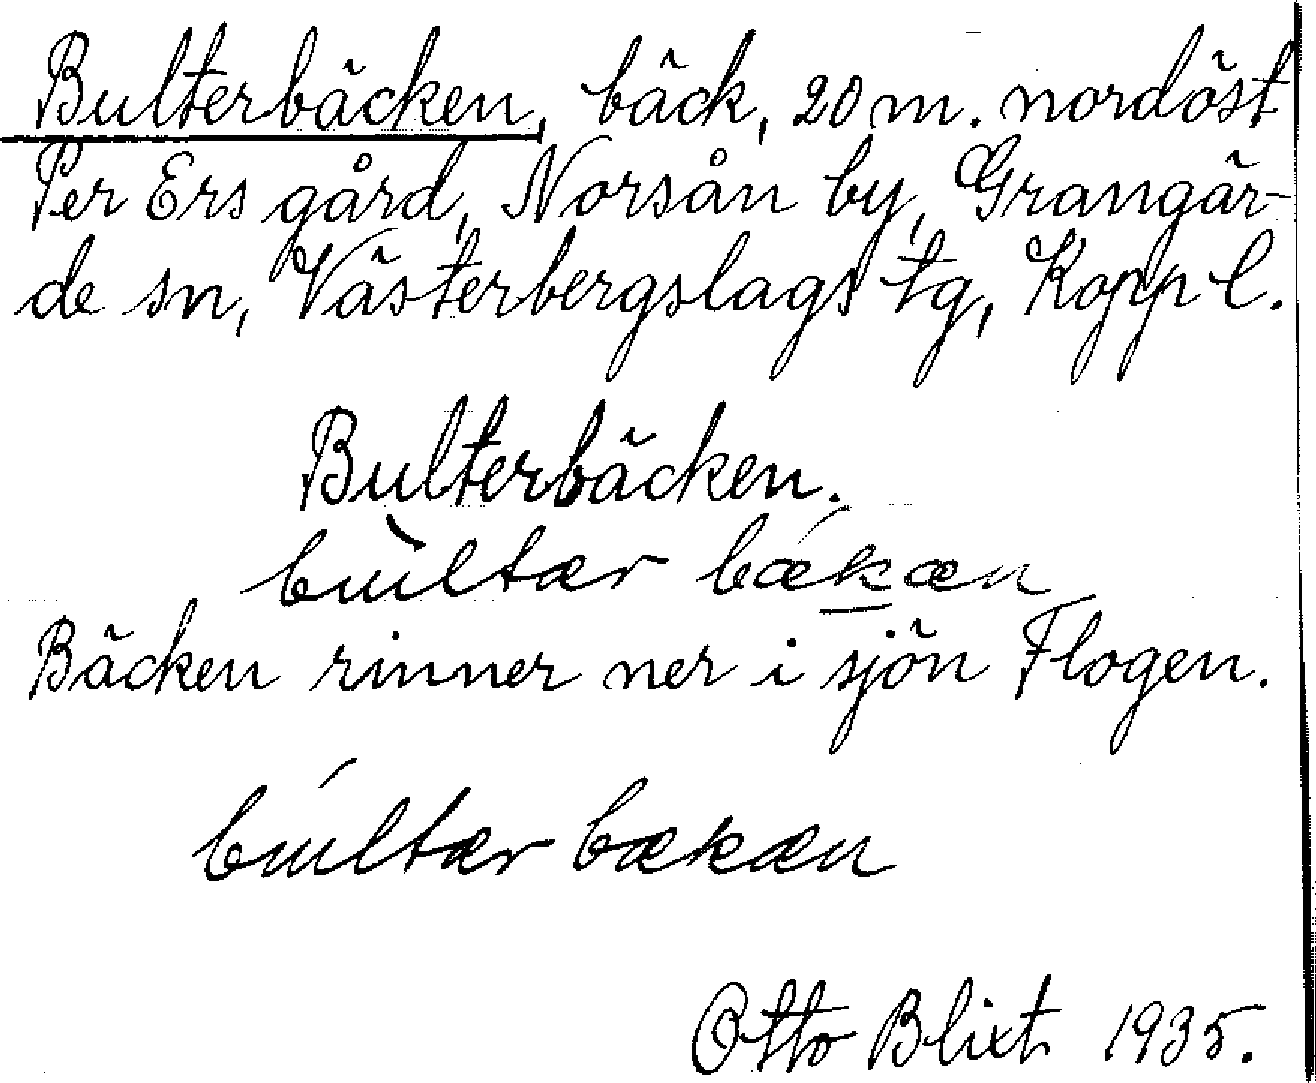 Bulterbäcken, bäck, 20 m. nordöst
Per Ers gård, Norsån by, Grangär-
de sn, Västerbergslags tg, Kopp l.
Bulterbäcken.
bùltær bǽkæn
Bäcken rinner ner i sjön Flogen.
búltær bækæn
Otto Blixt 1935.